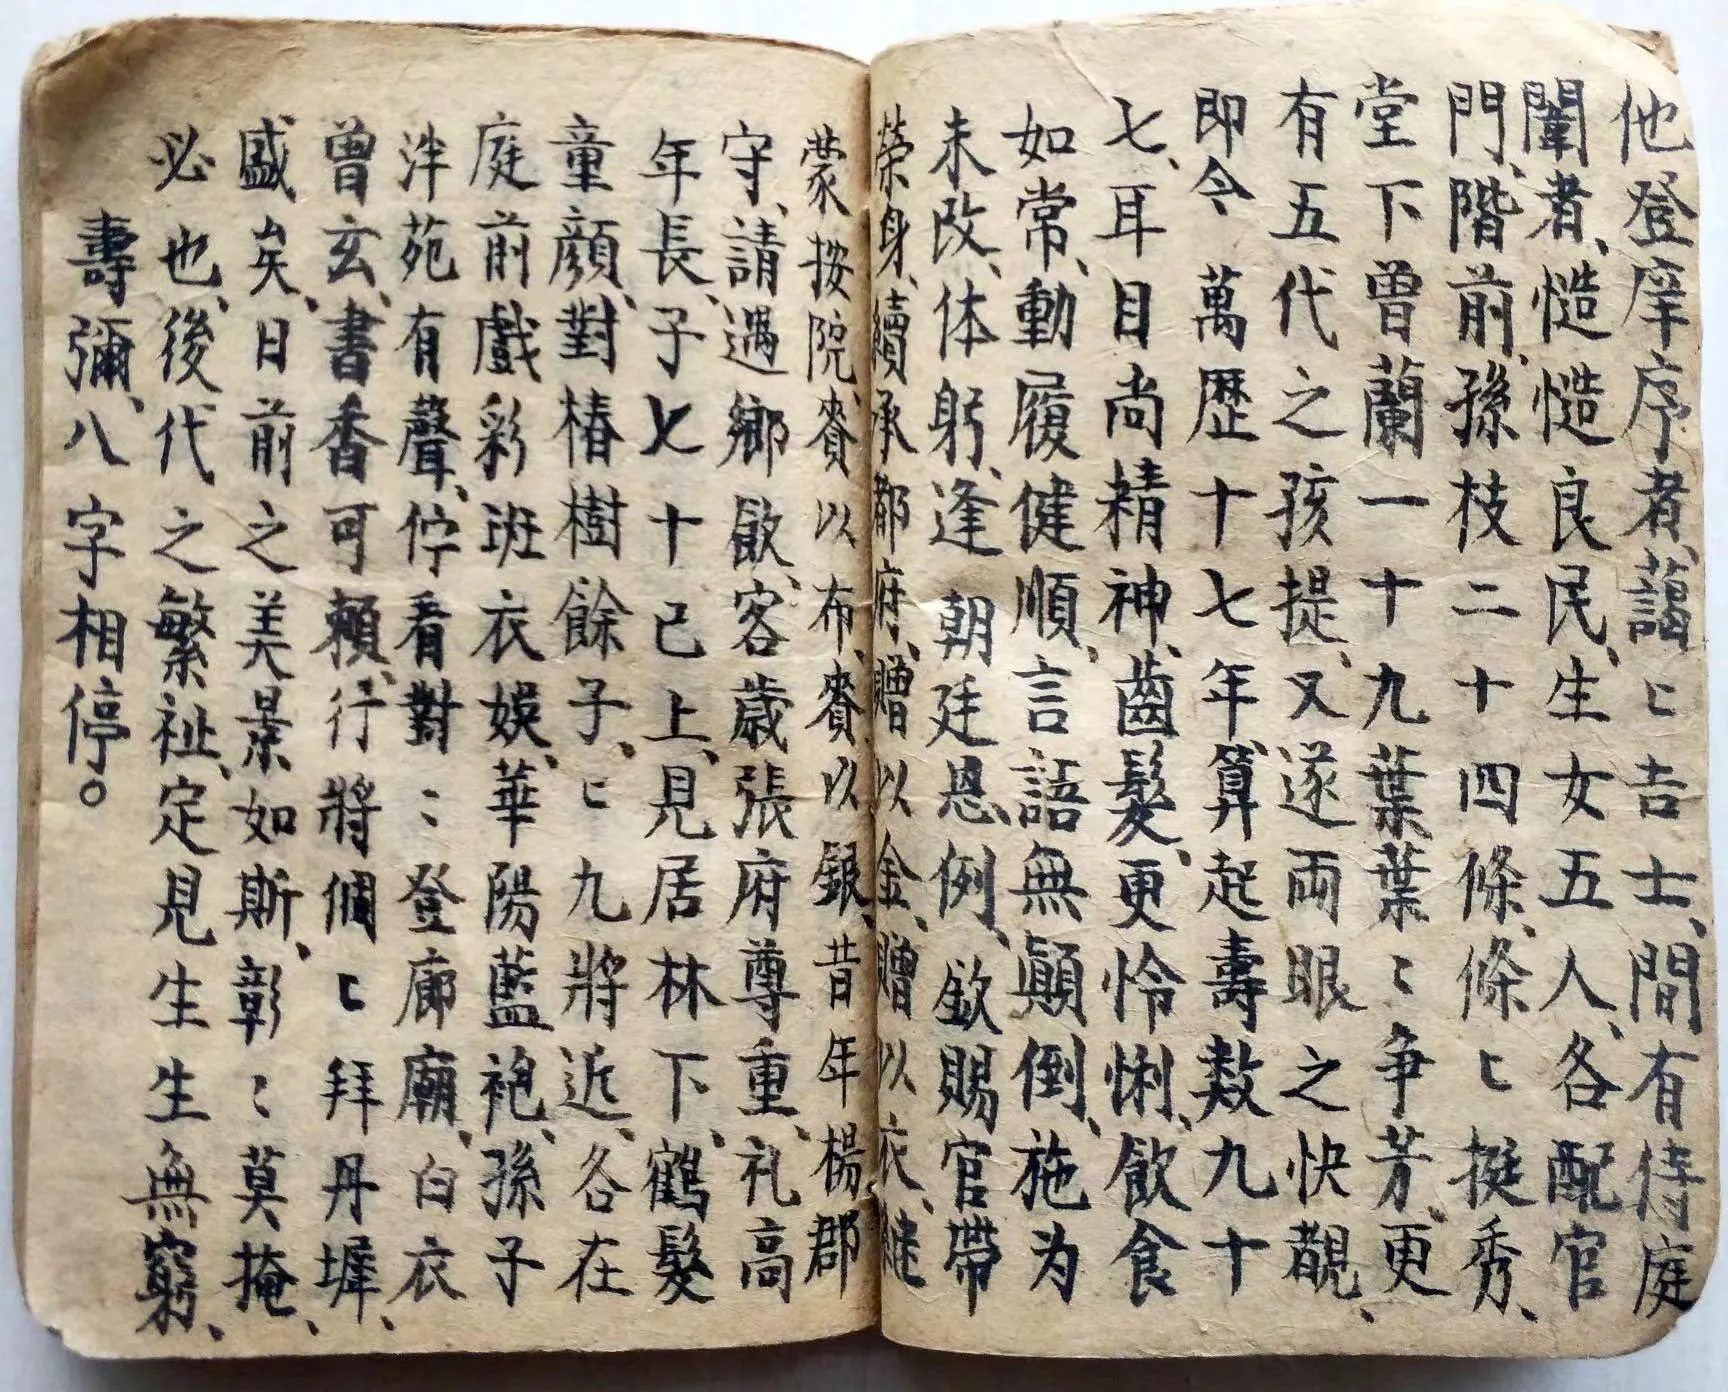 他登庠序者、藹〻吉士、間有侍庭
闈者、慥慥良民、生女五人、各配官
門、階前、孫枝二十四條、條〻挺秀、
堂下曾蘭一十九葉葉〻争芳、更
有五代之孩提、又遂両眼之快覩、
即今萬歷十七年、算起壽数九十
七、耳目尚精神、齒髮、更怜悧、飲食
如常、動履健順、言語無顛倒、施为
未改、体躬、逢朝廷恩例、欽賜官帶
榮身、續承郡府、贈以金、贈以衣、継
蒙按院、賚以布、賚以銀、昔年楊郡
守、請遇鄉飲、客歲張府尊重、礼高
年長、子七十已上、見居林下、鶴髮
童顔、對椿樹餘子、〻九將近、各在
庭前戲彩班衣娛、華陽藍袍、孫子
泮苑有聲、佇看對〻登廊廟、白衣
曾玄、書香可賴、行將個〻拜丹墀、
盛矣、日前之美景如斯、彰〻莫掩、
必也、後代之繁祉、定見生生無窮、
壽彌、八字相停。